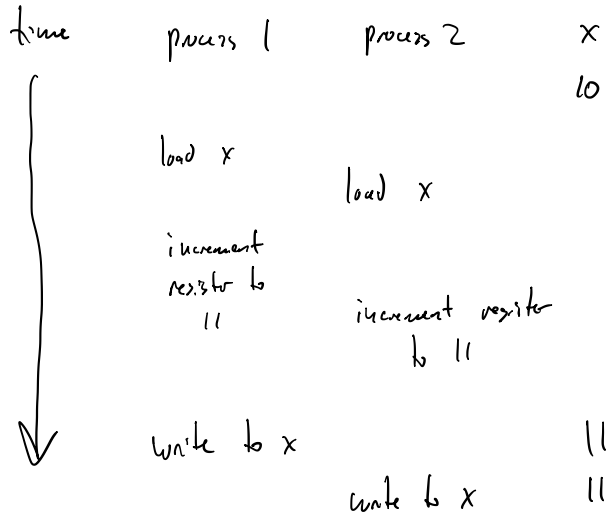 time process 1 process 2 x
10
load x
load x
increment
register to
11
increment register
to 11
write to x 11
write to x 11